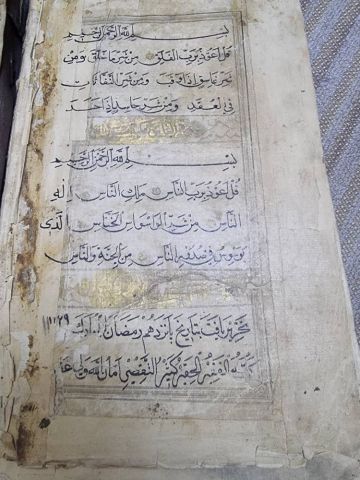 بسم الله الرحمن الرحيم
قل اعوذ برب الفلق من شر ما خلق ومن
شر غاسق اذا وقب ومن شر النفاثات
في العقد ومن شر حاسد اذا حسد
بسم الله الرحمن الرحيم
قل اعوذ برب الناس ملك الناس اله
الناس من شر الوسواس الخناس الذى
يوسوس في صدور الناس من الجنة والناس
تحرير يافت بتاريخ پانزدهم رمضان المبارك
١١٢٩
الفقير الحقير كثير التقصير امان الله